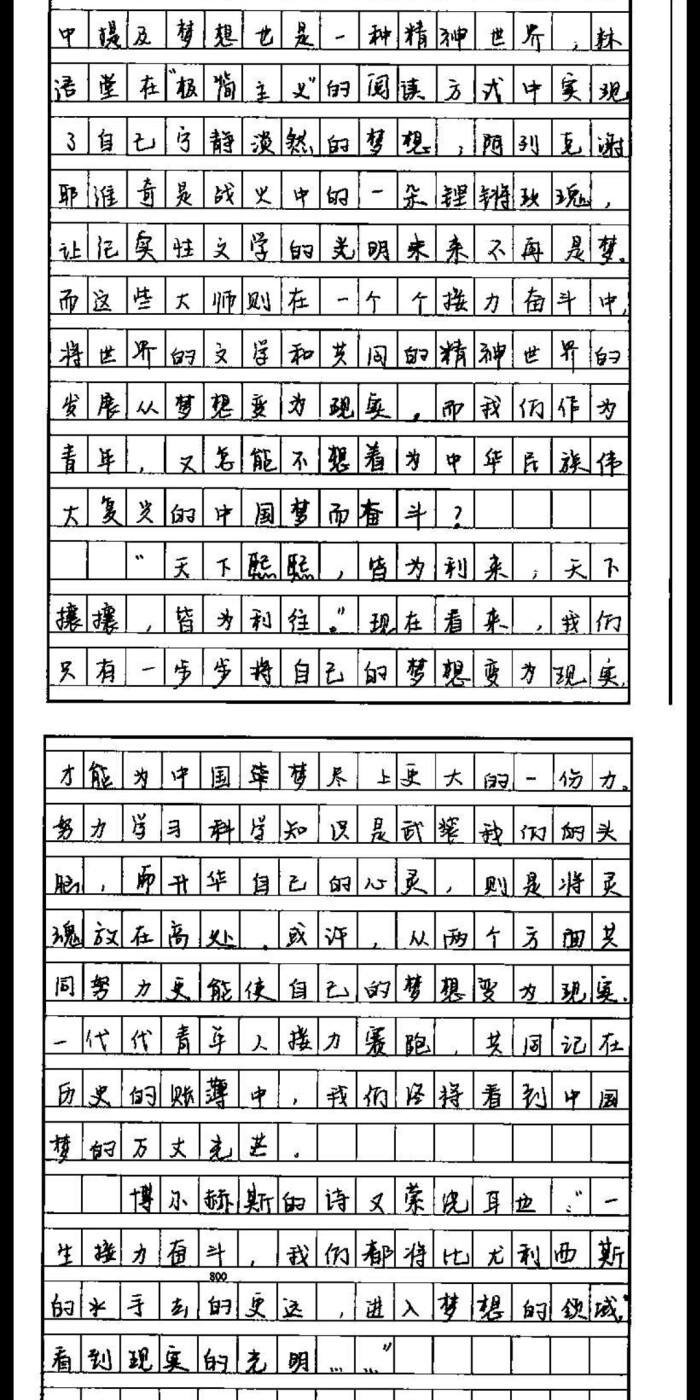 中提及梦想也是一种精神世界，林
语堂在“极简主义”的阅读方式中实现
了自己宁静淡然的梦想，阿列克谢
耶维奇是战火中的一朵铿锵玫瑰，
让纪实性文学的光明未来不再是梦。
而这些大师则在一个个接力奋斗中，
将世界的文学和共同的精神世界的
发展从梦想变为现实。而我们作为
青年，又怎能不想着为中华民族伟
大复兴的中国梦而奋斗？
“天下熙熙，皆为利来；天下
攘攘，皆为利往。”现在看来，我们
只有一步步将自己的梦想变为现实，
才能为中国梦尽上更大的一份力。
努力学习科学知识是武装我们的头
脑，而升华自己的心灵，则是将灵
魂放在高处。或许，从两个方面共
同努力更能使自己的梦想变为现实。
一代代青年人接力赛跑，共同记在
历史的账薄中，我们终将看到中国
梦的万丈光芒。
博尔赫斯的诗又萦绕耳边：“一
生接力奋斗，我们都将比尤利西斯
800
的水手去的更远，进入梦想的领域，
看到现实的光明……”